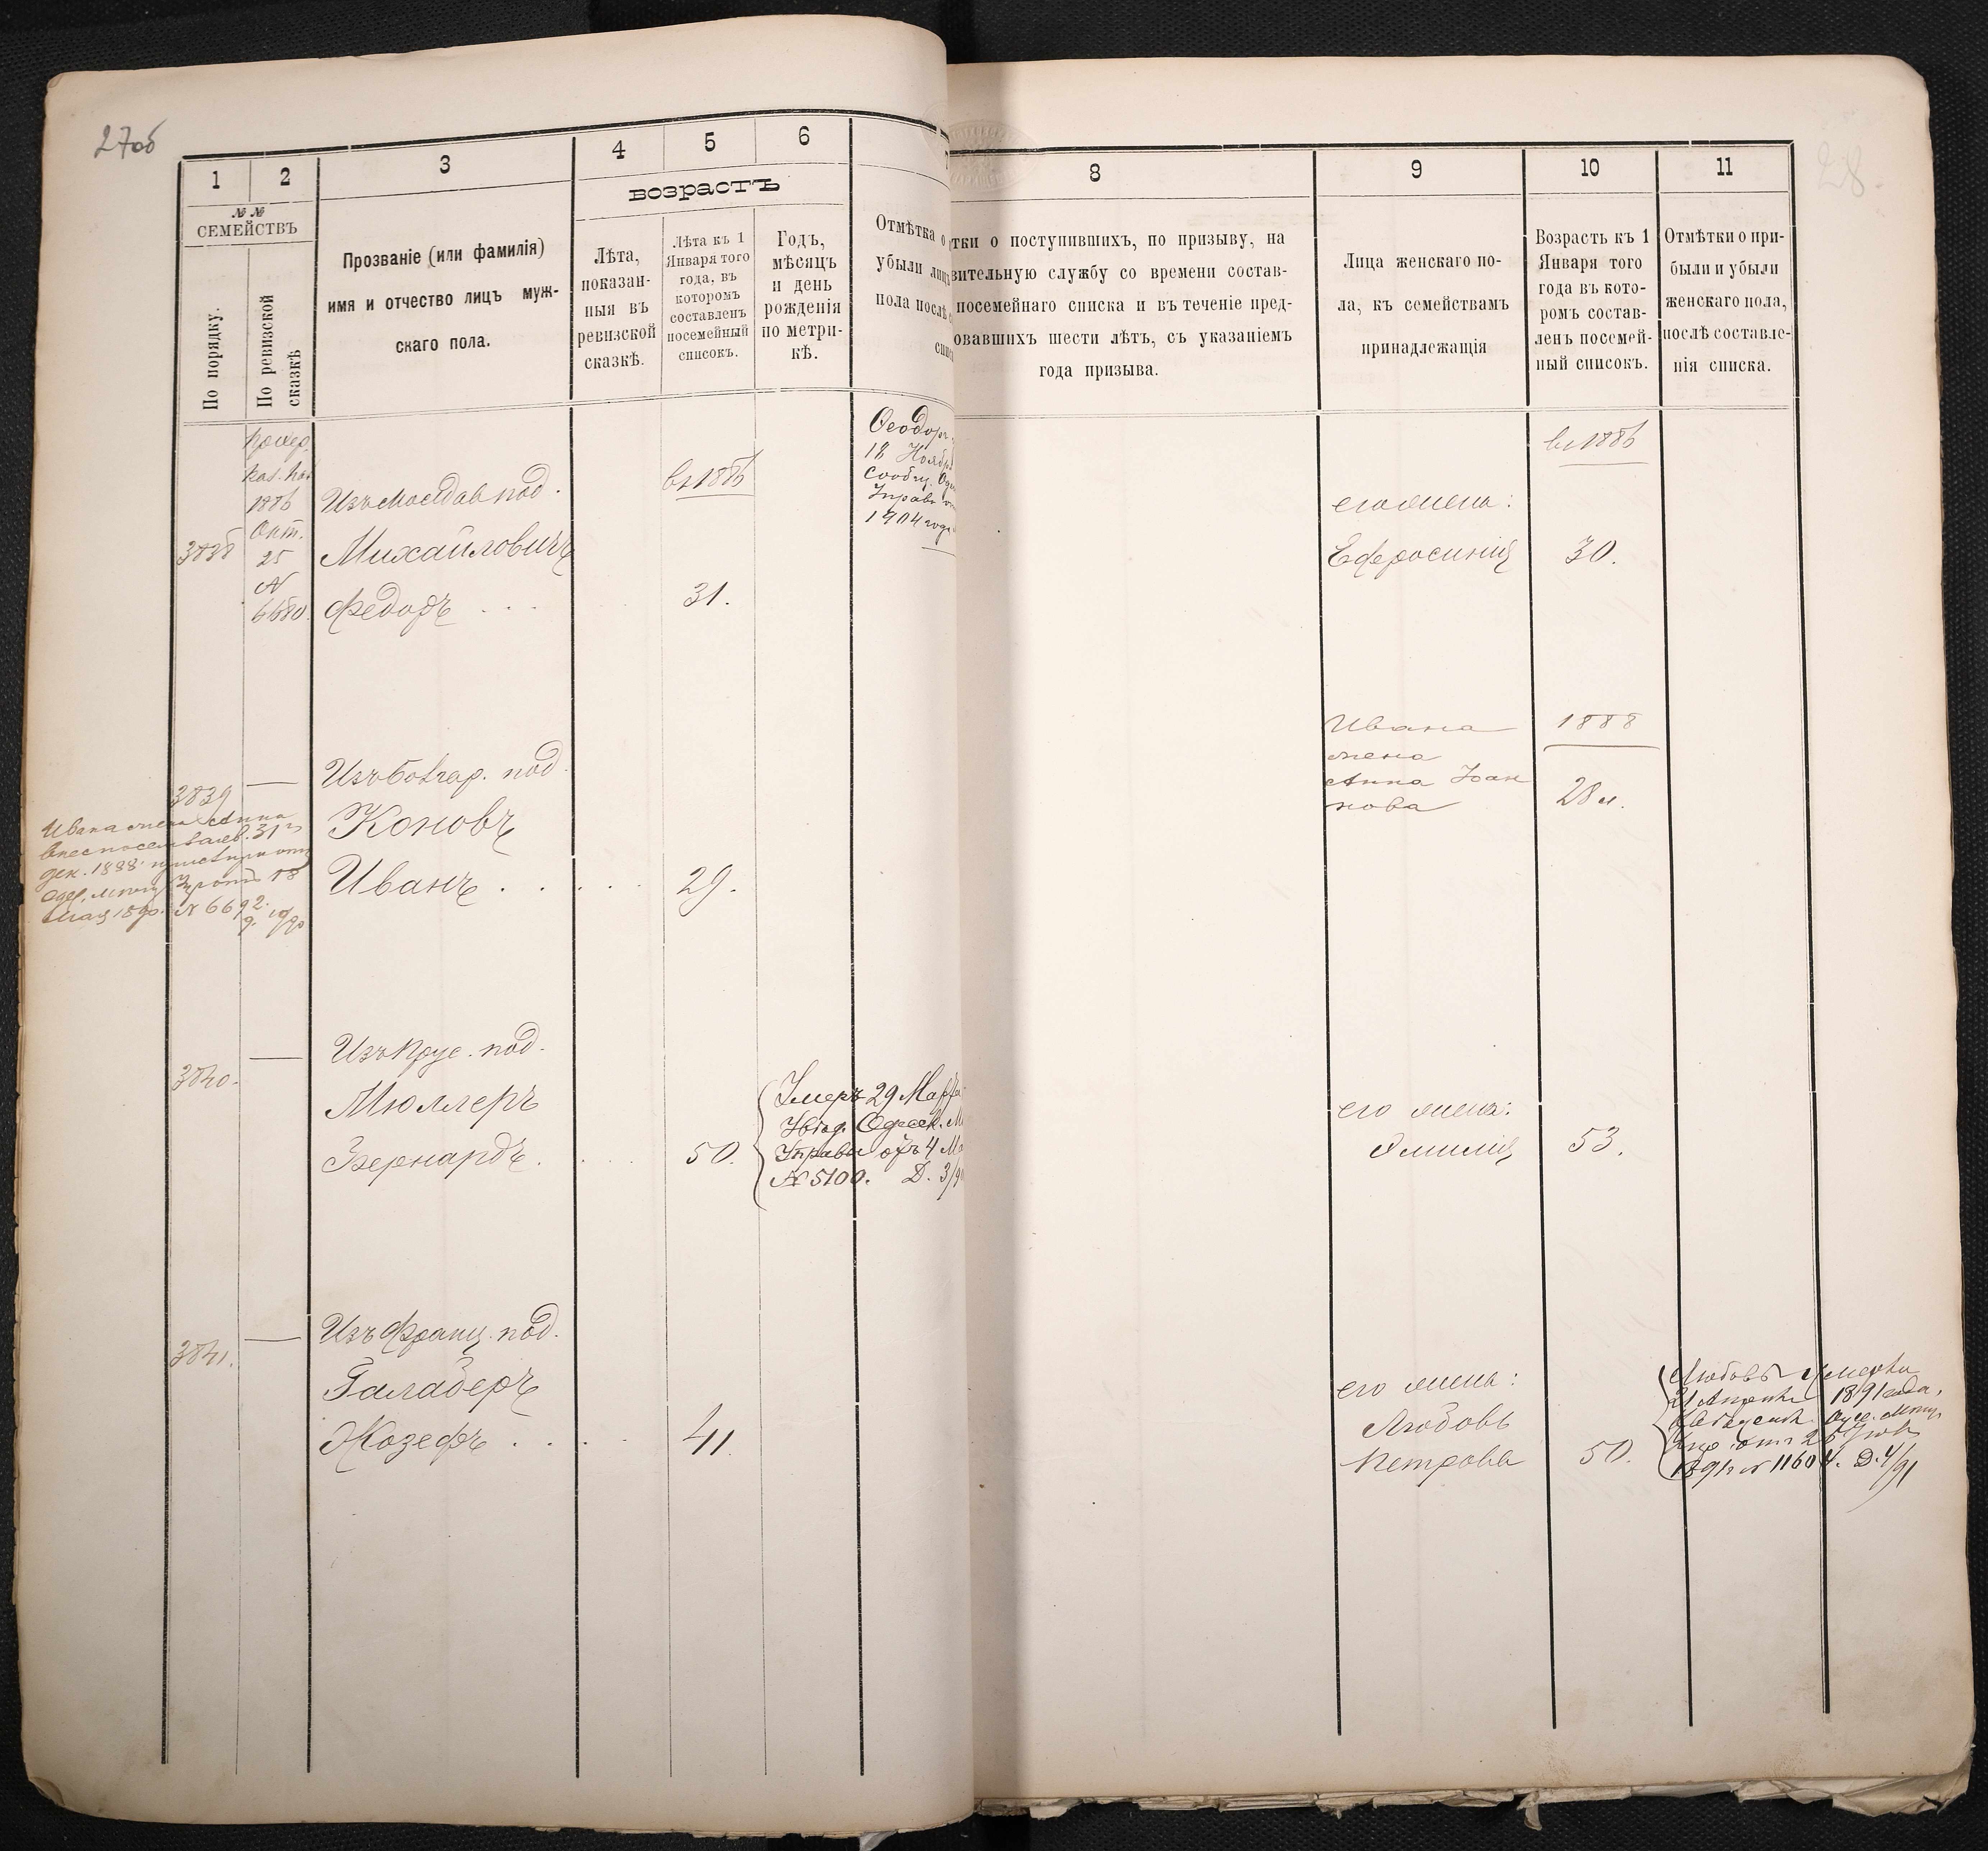 27об
28.
1
2
3
4
5
6
8
9
10
11
№ №
СЕМЕЙСТВЪ
По порядку.
По ревизской
сказкѣ
Прозваніе (или фамилія)
имя и отчество лицъ муж-
скаго пола.
возрастъ
Лѣта,
показан-
ныя въ
ревизской
сказкѣ.
Лѣта къ 1
Января того
года, въ
которомъ
составленъ
посемейный
списокъ.
Годъ,
мѣсяцъ
и день
рожденія
по метри-
кѣ.
Отмѣтка о
убыли лицъ
пола послѣ
тки о поступившихъ, по призыву, на
вительную службу со времени состав-
посемейнаго списка и въ теченіе пред-
овавшихъ шести лѣтъ, съ указаніемъ
года призыва.
Лица женскаго по-
ла, къ семействамъ
принадлежащія
Возрасть къ 1
Января того
года въ кото-
ромъ состав-
ленъ посемей-
ный списокъ.
Отмѣтки о при-
были и убыли
женскаго пола,
послѣ составле-
нія списка.
3838
1886
Окт.
25
N
6680.
Изъ Молдав под.
Михайловичъ
Федоръ . . .
въ 1886
31.
Ѳеодоръ
18 Ноября
Сообщ. Од
Управ
1904 года
его жена:
Ефросинія
въ 1886
30.
3839
Изъ Болгар. под.
Коновъ
Иванъ . . . . .
29.
Ивана жена Анна
дек. 1888
Мая 1890. N 6692.
Ивана
жена
Анна Іоан
нова
1888
28 л.
3840.
Изъ Прус. под.
Мюллеръ
Бернардъ . . . .
50.
Умеръ 29 Марта
Увѣд. Одесск. М
Управы отъ 4 Ма
N 5100. Д. 3/9
его жена:
Эмилія
53.
3841.
Изъ Франц. под.
Галадеръ
Жозефъ . . . .
41.
его жена:
Любовь
Петрова
50.
Любовь Умерла
21 Апрѣля 1891 года,
Одес. Мѣщ.
Упр. отъ 26
1891 г. N 11604. Д. 4/91